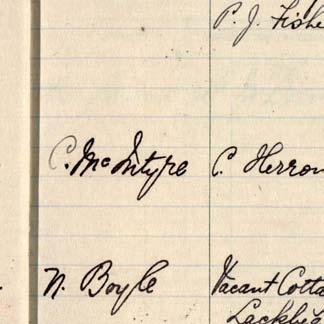 P. J. Fishe
C. McIntyre C. Herron
N. Boyle Vacant Cotta